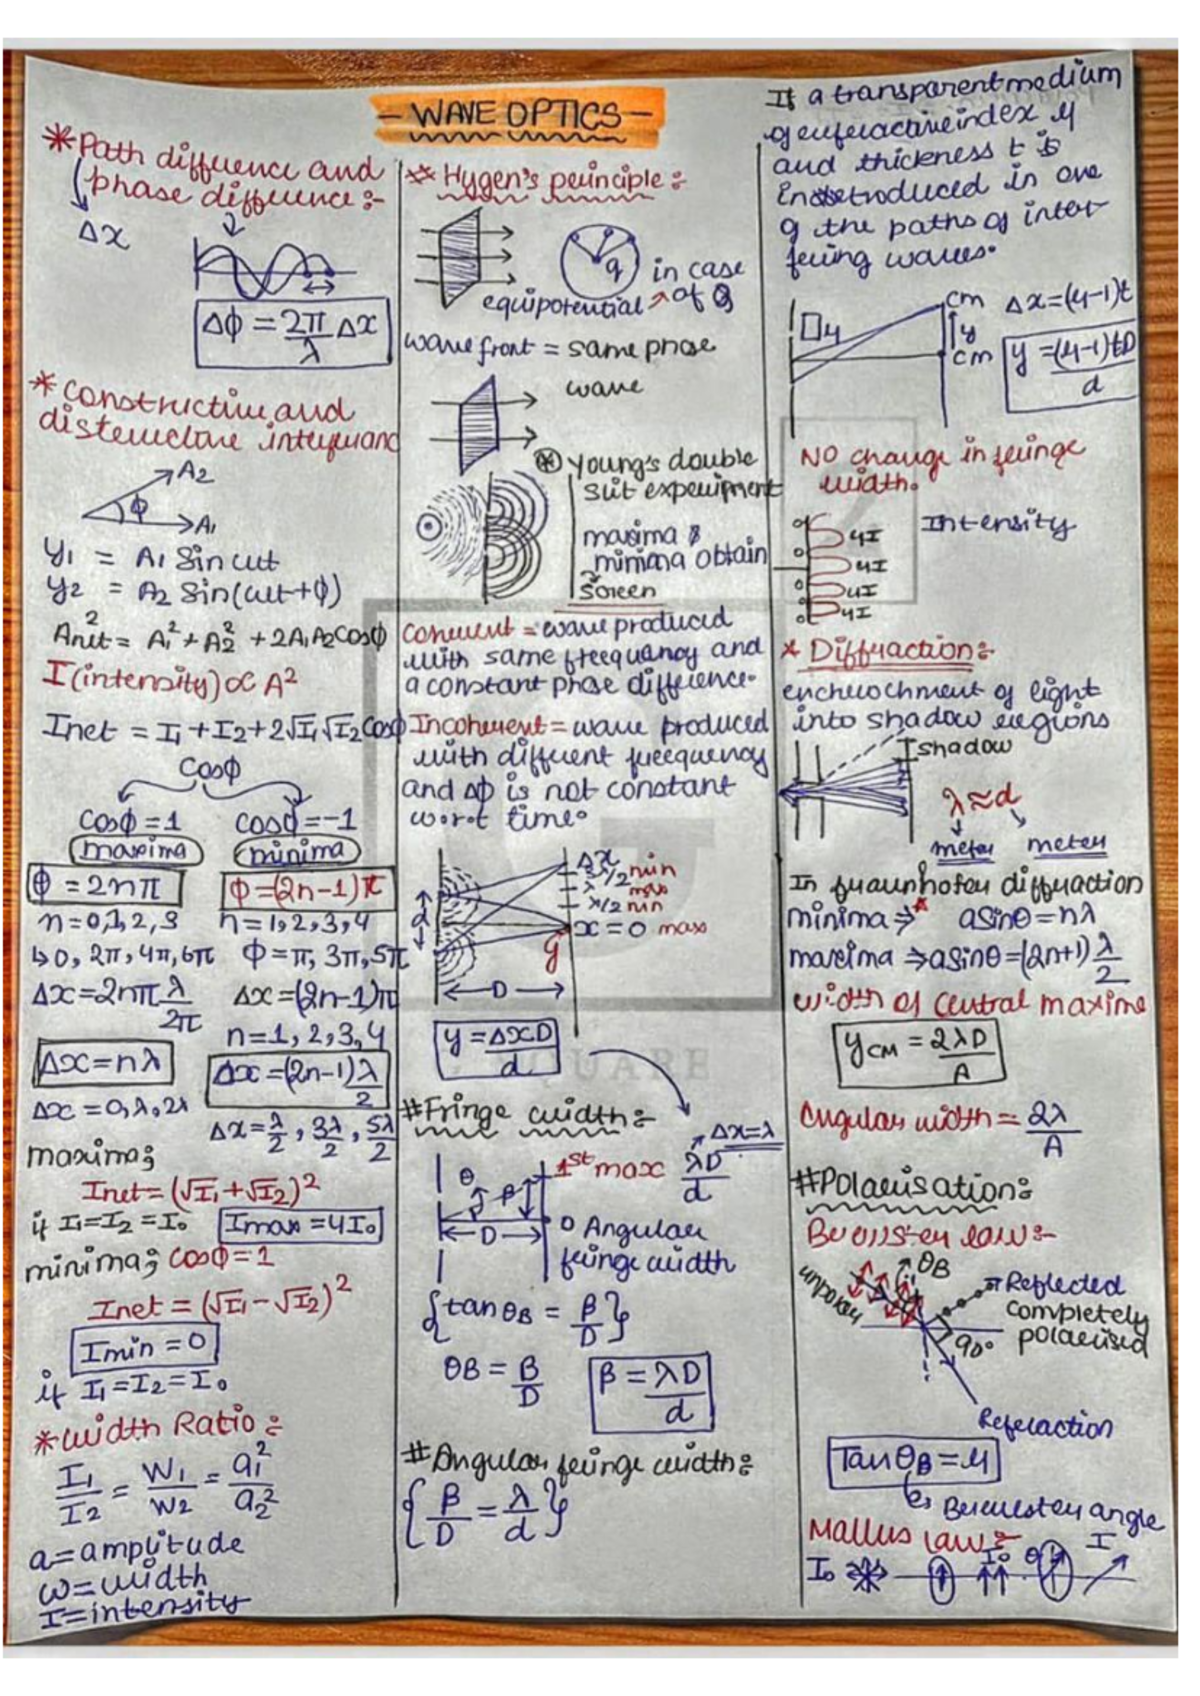 - WAVE OPTICS -
* Path difference and
phase difference :-
Δx
Δϕ = 2π/λ Δx
* Constructive and
distructive interferance
A2
ϕ
A1
y1 = A1 Sin ωt
y2 = A2 Sin(ωt+ϕ)
Anet² = A1² + A2² + 2A1A2cosϕ
I (intensity) ∝ A²
Inet = I1 + I2 + 2√I1 √I2 cosϕ
cosϕ
cosϕ = 1 cosϕ = -1
maxima minima
ϕ = 2nπ ϕ = (2n-1)π
n = 0,1,2,3 n = 1,2,3,4
↳ 0, 2π, 4π, 6π ϕ = π, 3π, 5π
Δx = 2nπ λ/2π Δx = (2n-1)π
n = 1, 2, 3, 4
Δx = nλ Δx = (2n-1) λ/2
Δx = 0, λ, 2λ Δx = λ/2, 3λ/2, 5λ/2
maxima;
Inet = (√I1 + √I2)²
if I1 = I2 = I0 Imax = 4I0
minima; cosϕ = 1
Inet = (√I1 - √I2)²
Imin = 0
if I1 = I2 = I0
* Width Ratio :-
I1/I2 = W1/W2 = a1²/a2²
a = amplitude
w = width
I = intensity
* Hygen's principle :-
q
in case
equipotential of Q
wavefront = same phase
wave
* Young's double
slit experiment
maxima &
minima obtain
Screen
Coherent = wave produced
with same frequency and
a constant phase difference.
Incoherent = wave produced
with different frequency
and Δϕ is not constant
w.r.t time.
Δx
3λ/2 min
λ max
λ/2 min
x = 0 max
d
y
D
y = ΔxD/d
SQUARE
#Fringe width :-
Δx = λ
1st max λD/d
θ
β
D
0 Angular
fringe width
{tan θB = β/D}
θB = B/D β = λD/d
# Angular fringe width :-
{β/D = λ/d}
If a transparent medium
of refractive index μ
and thickness t is
introduced in one
of the paths of inter-
fering waves.
cm Δx = (μ-1)t
μ
y
cm y = (μ-1)tD/d
NO change in fringe
width.
Intensity
4I
4I
4I
4I
* Diffraction :-
enchrochment of light
into shadow regions
shadow
λ ≈ d
meter meter
In fraunhofer diffraction
minima ⇒ asinθ = nλ
maxima ⇒ asinθ = (2n+1) λ/2
width of central maxima
yCM = 2λD/A
Angular width = 2λ/A
#Polarisation :-
Brewster law :-
θB
unpolar
Reflected
completely
polarised
90°
Refraction
Tan θB = μ
↳ Brewster angle
Mallus law :-
I0 I0 θ I